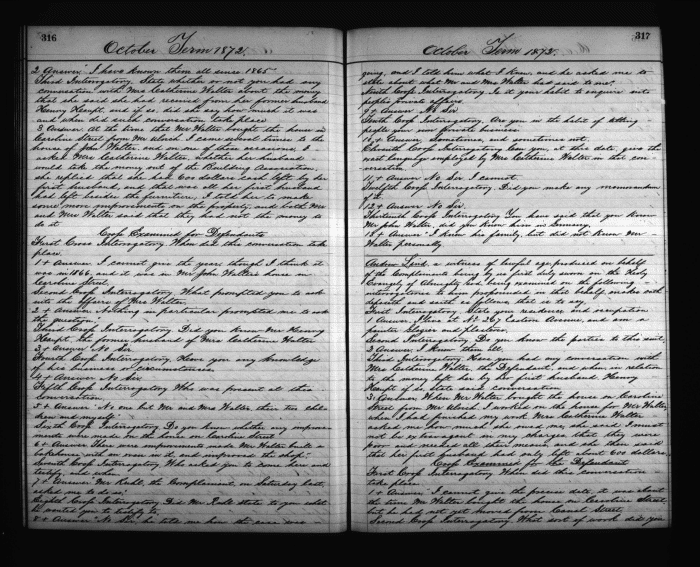 316
October Term 1872.
2 Answer I have known them all since 1865
Third Interrogatory. State whether or not you had any
conversation with Mrs Catherine Walter about the money
that she said she had received from her former husband
Henry Haupt, and if so did she say how much it was
and when did such conversation take place
3 Answer At the time that Mr Walter bought the house in
Caroline Street from Mr Ulrich I came several times to the
house of John Walter and on one of these occasions I
asked Mrs Catherine Walter, whether her husband
would take the money out of the Building Association,
she replied that she had 600 dollars cash left by her
first husband, and that was all her first husband
had left besides the furniture, I told her to make
some more improvements on the property, and both Mr
and Mrs Walter said that they had not the money to
do it
Cross Examined for Defendants
First Cross Interrogatory When did this conversation take
place.
1 + Answer I cannot give the year though I think it
was in 1866, and it was in Mr John Walter's house in
Caroline Street.
Second Cross Interrogatory. What prompted you to ask
into the affairs of Mrs Walter
2 + Answer. Nothing in particular prompted me to ask
the question.
Third Cross Interrogatory. Did you know Mr Henry
Haupt, the former husband of Mrs Catherine Walter
3 + Answer No Sir.
Fourth Cross Interrogatory Have you any knowledge
of his business or circumstances.
4 + Answer No Sir
Fifth Cross Interrogatory Who was present at this
Conversation.
5 + Answer No one but Mr and Mrs Walter their two chil
dren and myself.
Sixth Cross Interrogatory. Do you know whether any improve
ments were made on the house on Caroline Street.
6 + Answer There was improvements made Mr Walter built a
bakehouse with an oven in it and improved the shop.
Seventh Cross Interrogatory Who asked you to come here and
testify, and when
7 + Answer Mr Ruhl, the Complainant on Saturday last,
asked me to do so.
Eighth Cross Interrogatory. Did Mr Ruhl state to you what
he wanted you to testify to.
8 + Answer No Sir, he told me how the case was
317
October Term 1872.
going, and I told him what I knew, and he asked me to
state about what Mr and Mrs Walter had said to me.
Ninth Cross Interrogatory. Is it your habit to enquire into
peoples private affairs.
9 + Answer No Sir
Tenth Cross Interrogatory. Are you in the habit of telling
people your own private business
10 + Answer Sometimes, and sometimes not.
Eleventh Cross Interrogatory Can you at this date, give the
exact language employed by Mrs Catherine Walter in that con
versation.
11 + Answer No Sir I cannot.
Twelfth Cross Interrogatory. Did you make any memorandum
of it.
12 + Answer No Sir.
Thirteenth Cross Interrogatory You have said that you know
Mr John Walter, did you know him in Germany.
13 + Answer I knew his family, but did not know Mr
Walter personally.
a witness of lawful age produced on behalf
of the Complainants being by me first duly sworn on the Holy
Evangely of Almighty God being examined on the following
interrogatories then propounded in this behalf make oath
deposeth and saith as follows, that is to say,
First Interrogatory. State your residence and occupation
1 Answer I live at No 267 Eastern Avenue, and am
painter Glazier and plasterer.
Second Interrogatory. Do you know the parties to this suit.
2 Answer. I know them all.
Third Interrogatory. Have you had any conversation with
Mrs Catherine Walter, the Defendant, and when in relation
to the money left her by her first husband, Henry
Haupt, if so, state such conversation
3 Answer When Mr Walter bought the house on Caroline
Street from Mr Ulrich I worked on the house for Mr Walter,
when I had finished my work Mrs Catherine Walter
asked me how much she owed me, she said I must
not be extravagant in my charges, that they were
poor and needed all their money, and she then said
that her first husband had only left about 600 dollars.
Cross Examined for the Defendant
First Cross Interrogatory. When did this conversation
take place.
1 + Answer I cannot give the precise date, it was about
the time Mr Walter bought the house in Caroline Street
but he had not yet moved from Canal Street
Second Cross Interrogatory. What sort of work did you